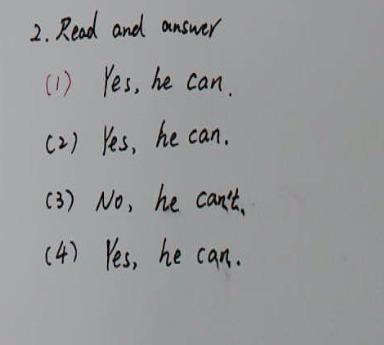 2. Read and answer
(1) Yes, he can.
(2) Yes, he can.
(3) No, he can't.
(4) Yes, he can.